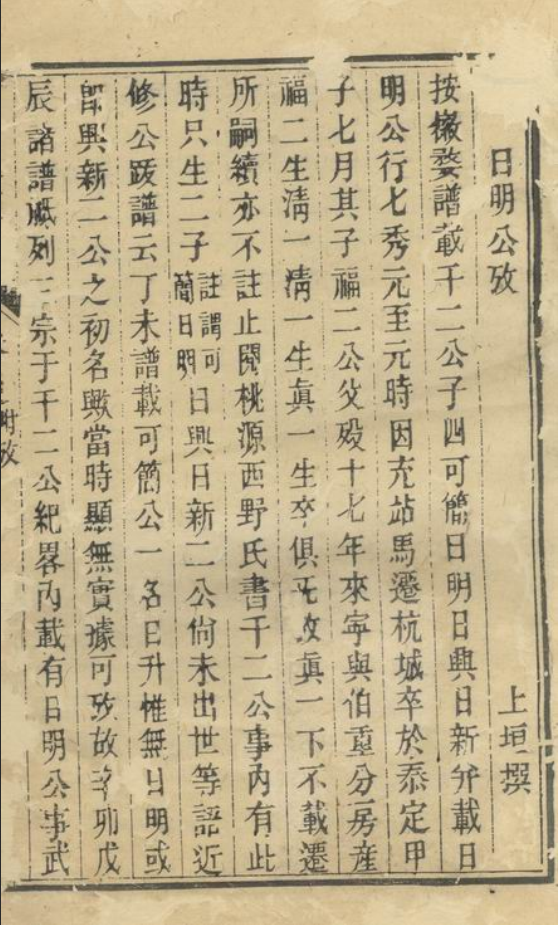 日明公攷
上垣撰
按檄婺譜載千二公子四可簡日明日興日新并載日
明公行七秀元至元時因充站馬遷杭城卒於泰定甲
子七月其子福二公父殁十七年來寧與伯重分房產
福二生清一清一生眞一生卒俱无攷眞一下不載遷
所嗣續亦不註止閱桃源西野氏書千二公事內有此
時只生二子註謂可簡日明日興日新二公尙未出世等語近
修公跋譜云丁未譜載可簡公一名日升惟無日明或
卽興新二公之初名歟當時顯無實據可攷故辛卯戊
辰諸譜臚列三宗于千二公紀畧內載有日明公事武
附攷